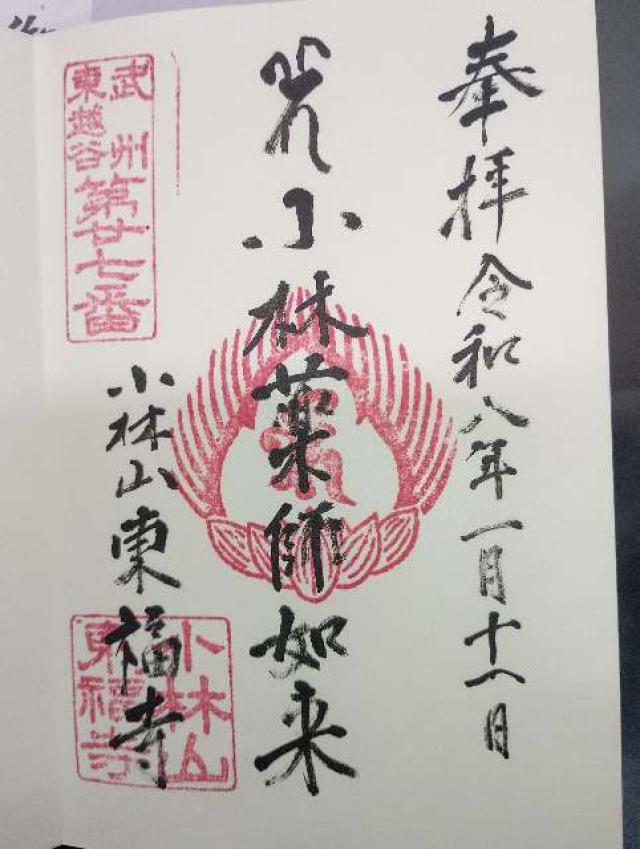 奉拝 令和八年一月十八日
小林薬師如来
小林山東福寺
武州
東越谷
第廿七番
小林山
東福寺